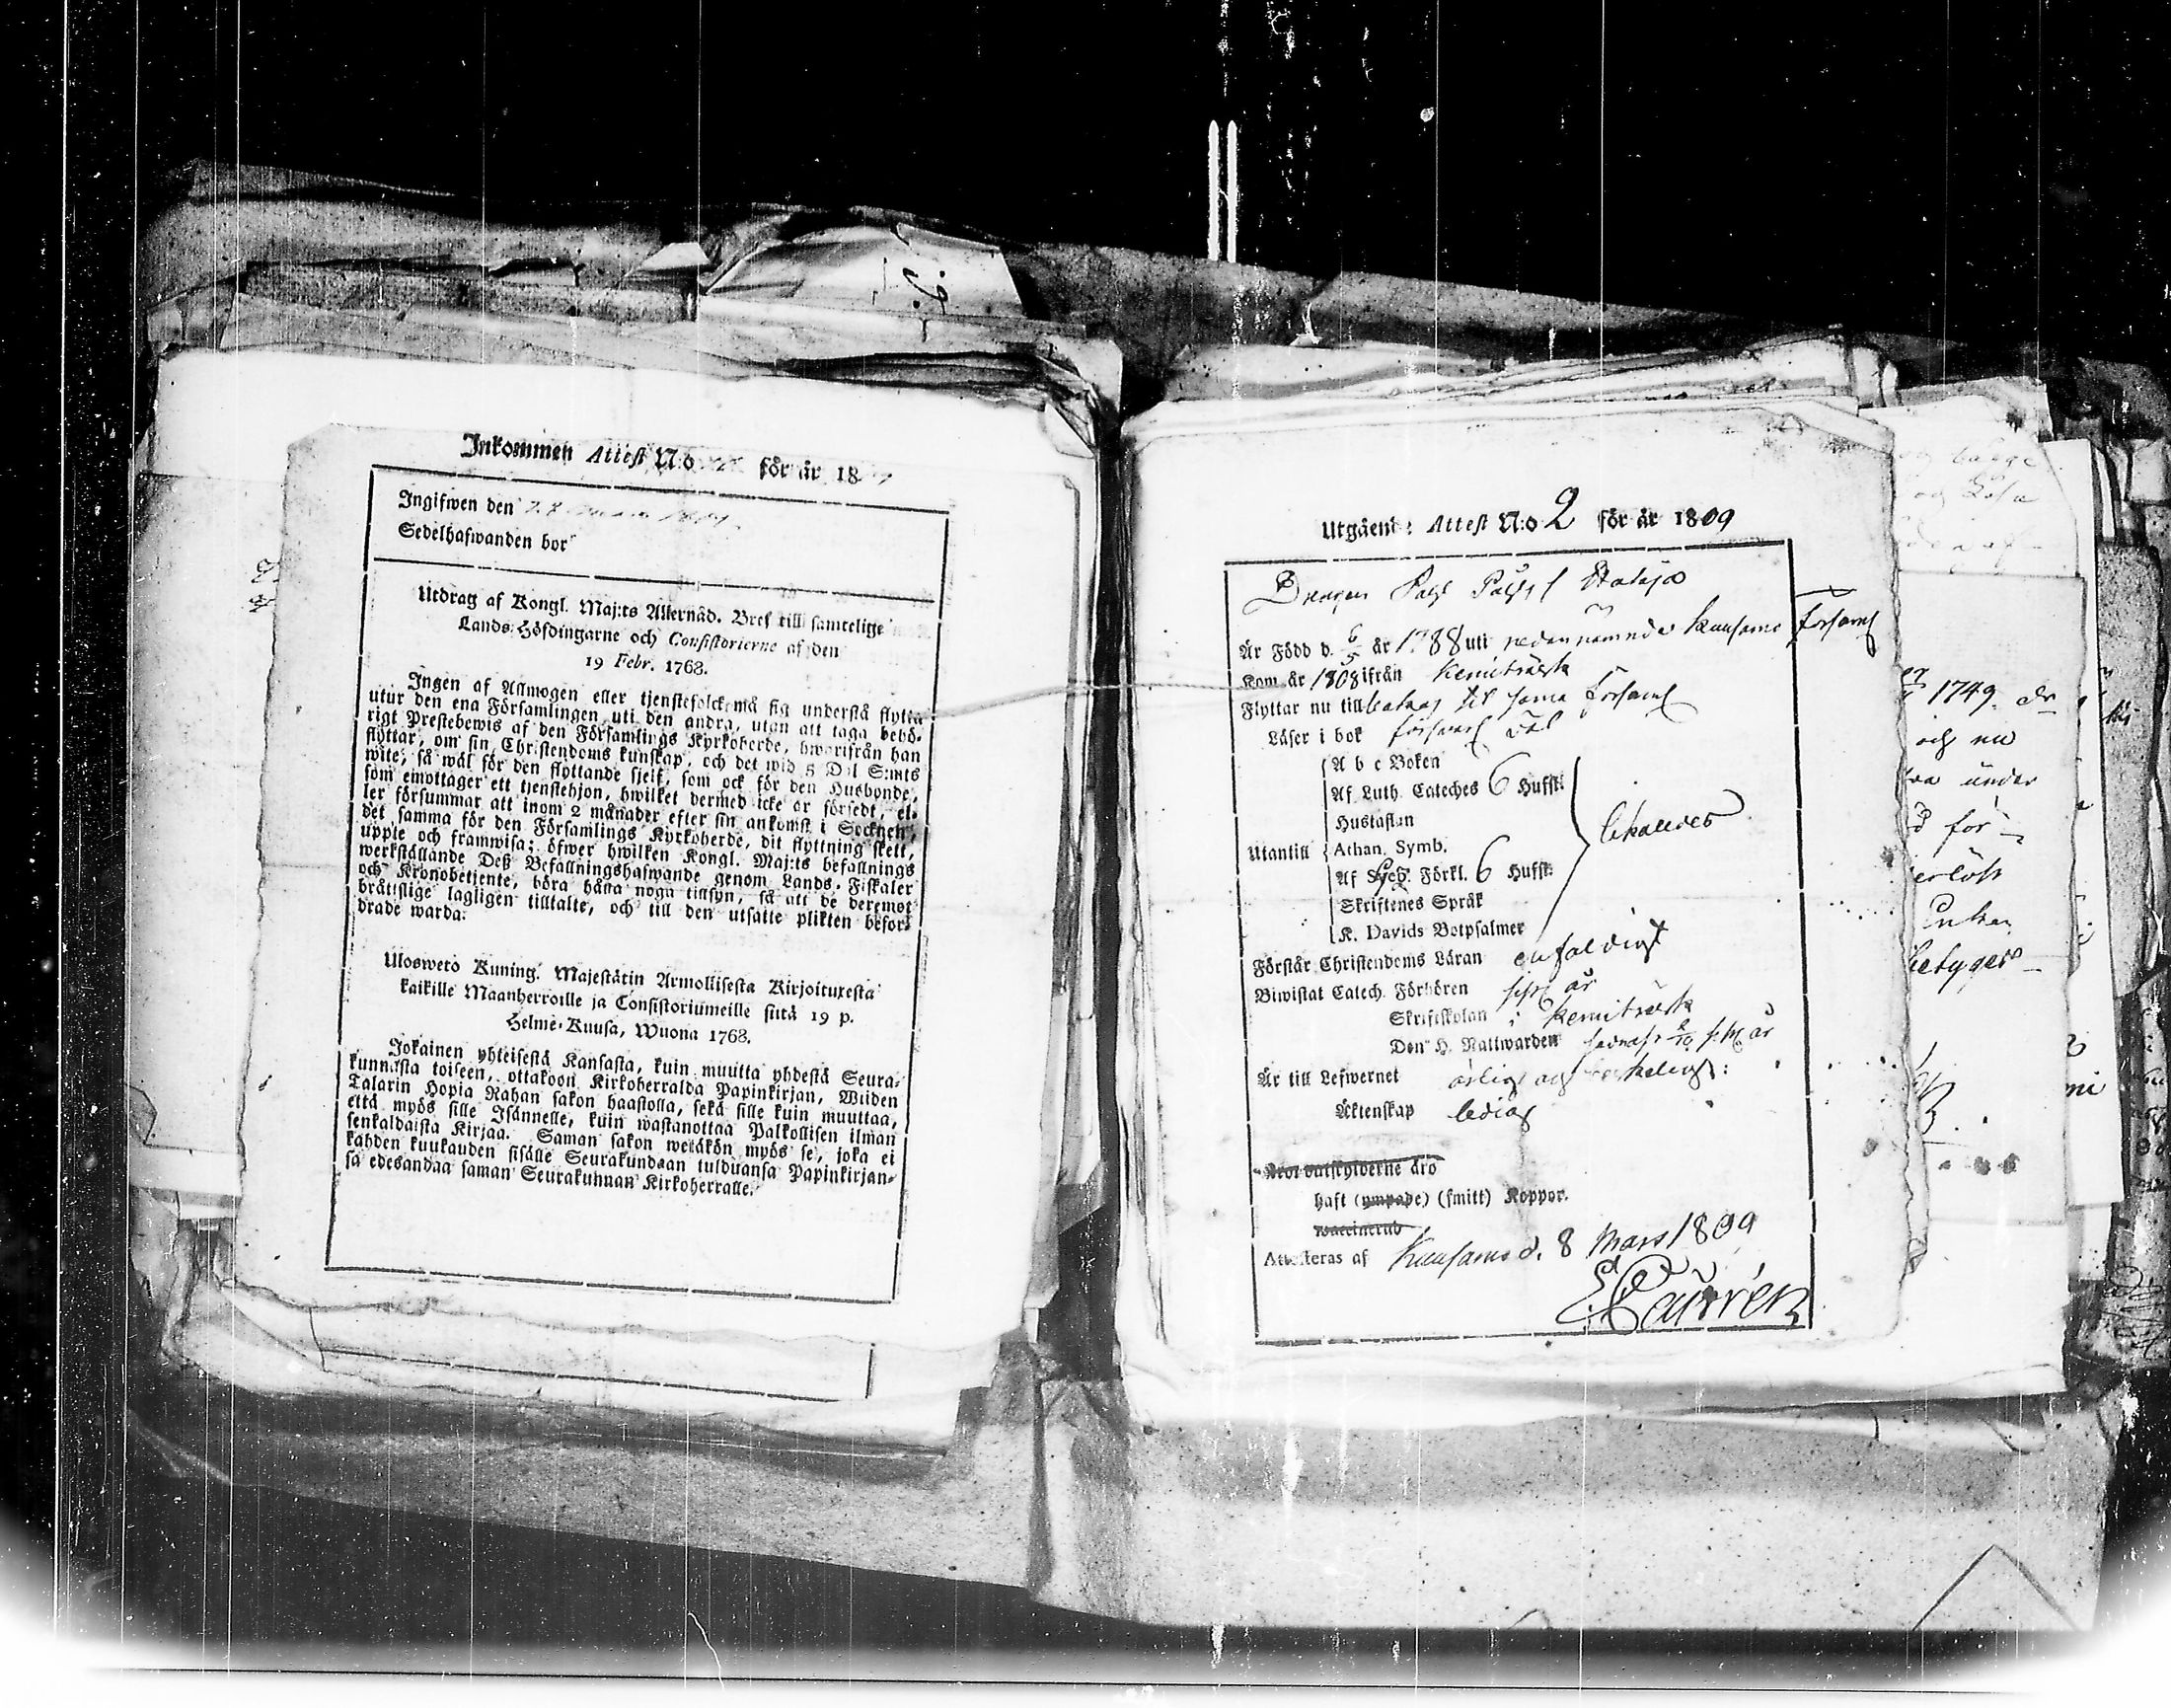 Inkommen Attest N:o för år 18
Ingifwen den
Sedelhafwanden bor
Utdrag af Kongl. Maj:ts Allernåd. Bref till samtelige
Lands-Höfdingarne och Consistorierne af den
19 Febr. 1763.
Ingen af Allmogen eller tjenstefolck må sig understå flytta
utur den ena Församlingen uti den andra, utan att taga behö-
rigt Prestebewis af den Församlings Kyrkoherde, hworifrån han
flyttar, om sin Christendoms kunskap, och det wid 5 Dal S:mts
wite, så wäl för den flyttande sjelf, som ock för den Husbonde,
som emottager ett tjenstehjon, hwilket dermed icke är försedt, el-
ler försummar att inom 2 månader efter sin ankomst i Socknen,
det samma för den Församlings Kyrkoherde, dit flyttning skett,
uppte och framwisa; öfwer hwilken Kongl. Maj:ts befallnings
werkställande Deß Befallningshafwande genom Lands-Fiskaler
och Kronobetjente, böra hålla noga tillsyn, så att de deremot
bråttslige lagligen tilltalte, och till den utsatte plikten befor-
drade warda.
Uloswetö Kuning. Majestätin Armollisesta Kirjoituxesta
kaikille Maanherroille ja Consistoriumeille siitä 19 p.
Helme-Kuusa, Wuona 1763.
Jokainen yhteisestä Kansasta, kuin muutta yhdestä Seura-
kunnasta toiseen, ottakoon Kirkoherralda Papinkirjan, Wiiden
Talarin Hopia Rahan sakon haastolla, sekä sille kuin muuttaa,
että myös sille Isännelle, kuin wastanottaa Palkollisen ilman
senkaldaista Kirjaa. Saman sakon wetäkön myös se, joka ei
kahden kuukauden sisälle Seurakundaan tulduansa Papinkirjan-
sa edesandaa saman Seurakunnan Kirkoherralle.
Utgåend: Attest N:o 2 för år 1809
Är Född d. 6/5 år 1788 uti nedannämnde Kuusamo församl
Kom år 1808 ifrån Kemiträsk
Flyttar nu till bakas til sama församl
Läser i bok försvarl väl
A b c Boken
Af Luth. Cateches 6 Hufst.
Hustaflan
Utantill Athan. Symb.
Af Förkl. 6 Hufst.
Skriftenes Språk
K. Davids Botpsalmer
Förstår Christendoms Läran enfaldigt
Biwistat Catech. Förhören sistl år
Skriftskolan i Kemiträsk
Den H. Nattwarden sistl år
Är till Lefwernet ärlig och
Äktenskap ledig
äro
haft (ympade) (smitt) Koppor.
waccinerad
Attesteras af Kuusamo d. 8 Mars 1809
1749.
och nu
under
för
Enkan
betyger